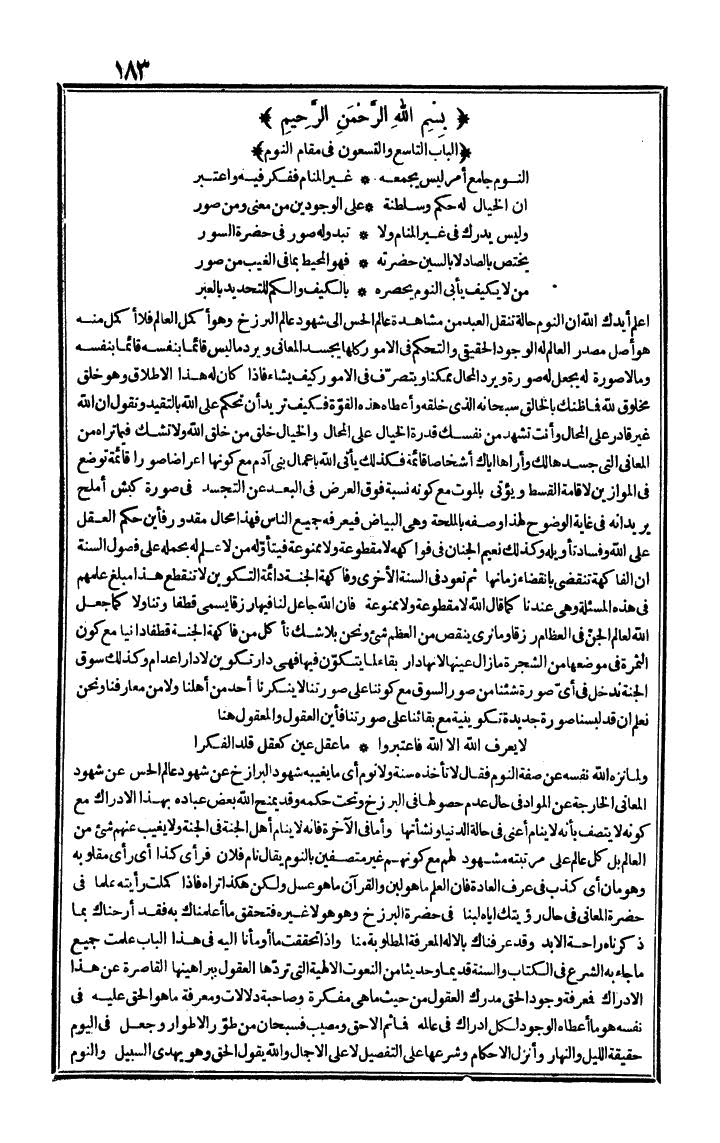 ١٨٣
﴿ بِسْمِ اللهِ الرَّحْمَنِ الرَّحِيمِ ﴾
﴿الباب التاسع والتسعون فى مقام النوم﴾
النوم جامع أمر ليس يجمعه * غير المنام ففكر فيه واعتبر
ان الخيال له حكم وسلطنة * على الوجودين من معنى ومن صور
وليس يدرك فى غير المنام ولا * تبدو له صور فى حضرة السور
يختص بالصاد لا بالسين حضرته * فهو المحيط بما فى الغيب من صور
من لا يكيف يأبى النوم يحصره * بالكيف والكم للتحديد بالعبر
اعلم أيدك الله ان النوم حالة تنقل العبد من مشاهدة عالم الحس الى شهود عالم البرزخ وهو أكمل العالم فلا أكمل منه
هو أصل مصدر العالم له الوجود الحقيقى والتحكم فى الامور كلها يجسد المعانى ويرد ما ليس قائما بنفسه قائما بنفسه
وما لا صورة له يجعل له صورة ويرد المحال ممكنا ويتصرّف فى الامور كيف يشاء فاذا كان له هذا الاطلاق وهو خلق
مخلوق لله فما ظنك بالخالق سبحانه الذى خلقه وأعطاه هذه القوّة فكيف تريد أن تحكم على الله بالتقييد وتقول ان الله
غير قادر على المحال وأنت تشهد من نفسك قدرة الخيال على المحال والخيال خلق من خلق الله ولا تشك فيما تراه من
المعانى التى جسدها لك وأراها اياك أشخاصا قائمة فكذلك يأتى الله باعمال بنى آدم مع كونها اعراضا صورا قائمة توضع
فى الموازين لاقامة القسط ويؤتى بالموت مع كونه نسبة فوق العرض فى البعد عن التجسد فى صورة كبش أملح
يريد انه فى غاية الوضوح لهذا وصفه بالملحة وهى البياض فيعرفه جميع الناس فهذا محال مقدور فأين حكم العقل
على الله وفساد تأويله وكذلك نعيم الجنان فى فواكهه لا مقطوعة ولا ممنوعة فيتأوّله من لا علم له يحمله على فصول السنة
ان الفاكهة تنقضى بانقضاء زمانها ثم تعود فى السنة الأخرى وفاكهة الجنة دائمة التكوين لا تنقطع هذا مبلغ علمهم
فى هذه المسئلة وهى عندنا كما قال الله لا مقطوعة ولا ممنوعة فان الله جاعل لنا فيها رزقا يسمى قطفا وتناولا كما جعل
الله لعالم الجنّ فى العظام رزقا وما نرى ينقص من العظم شئ ونحن بلا شك نأكل من فاكهة الجنة قطفا دانيا مع كون
الثمرة فى موضعها من الشجرة ما زال عينها لانها دار بقاء لما يتكوّن فيها فهى دار تكوين لا دار اعدام وكذلك سوق
الجنة ندخل فى أىّ صورة شئنا من صور السوق مع كوننا على صورتنا لا ينكرنا أحد من أهلنا ولا من معارفنا ونحن
نعلم ان قد لبسنا صورة جديدة تكوينية مع بقائنا على صورتنا فأين العقول والمعقول هنا
لا يعرف الله الا الله فاعتبروا * ما عقل عين كعقل قلد الفكرا
ولما نزه الله نفسه عن صفة النوم فقال لا تأخذه سنة ولا نوم أى ما يغيبه شهود البرازخ عن شهود عالم الحس عن شهود
المعانى الخارجة عن المواد فى حال عدم حصولها فى البرزخ وتحت حكمه وقد يمنح الله بعض عباده بهذا الادراك مع
كونه لا يتصف بأنه لا ينام أعنى فى حالة الدنيا ونشأتها وأما فى الآخرة فانه لا ينام أهل الجنة فى الجنة ولا يغيب عنهم شئ من
العالم بل كل عالم على مرتبته مشهود لهم مع كونهم غير متصفين بالنوم يقال نام فلان فرأى كذا أى رأى مقلوبه
وهو مان أى كذب فى عرف العادة فان العلم ما هو لبن والقرآن ما هو عسل ولكن هكذا تراه فاذا كملت رأيته علما فى
حضرة المعانى فى حال رؤيتك اياه لبنا فى حضرة البرزخ وهو هو لا غيره فتحقق ما أعلمناك به فقد أرحناك بما
ذكرناه راحة الابد وقد عرفناك بالاله المعرفة المطلوبة منا واذا تحققت ما أومأنا اليه فى هذا الباب علمت جميع
ما جاء به الشرع فى الكتاب والسنة قديما وحديثا من النعوت الالهية التى تردّها العقول ببراهينها القاصرة عن هذا
الادراك فمعرفة وجود الحق مدرك العقول من حيث ما هى مفكرة وصاحبة دلالات ومعرفة ما هو الحق عليه فى
نفسه هو ما أعطاه الوجود لكل ادراك فى عالمه فما ثم الا حق ومصيب فسبحان من طوّر الاطوار وجعل فى اليوم
حقيقة الليل والنهار وأنزل الاحكام وشرعها على التفصيل لا على الاجمال والله يقول الحق وهو يهدى السبيل والنوم